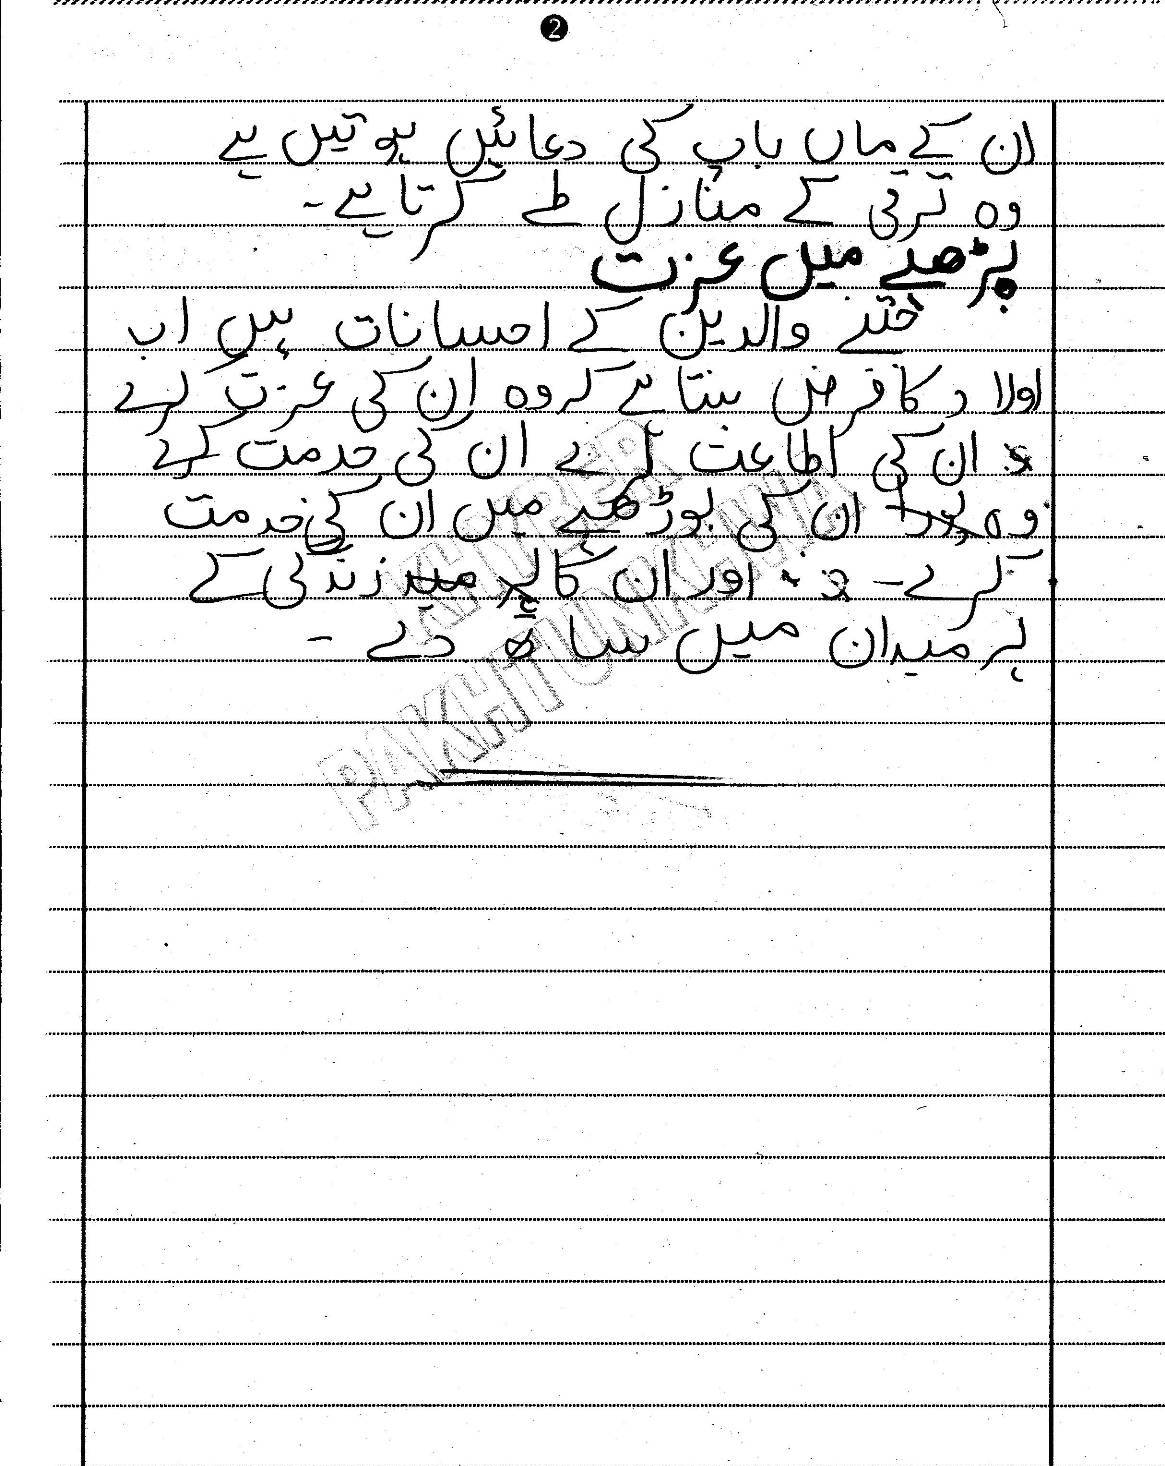 2
ان کے ماں باپ کی دعائیں ہوتیں ہے
وہ ترقی کے منازل طے کرتا ہے۔
بڑھپے میں عزت
جتنے والدین کے احسانات ہیں اب
اولاد کا فرض بنتا ہے کہ وہ ان کی عزت کرے
ان کی اطاعت کرے ان کی خدمت کرے
وہ ان کی بوڑھپے میں ان کی خدمت
کرے۔ اور ان کا ہر زندگی کے
ہر میدان میں ساتھ دے۔
KHYBER
PAKHTUNKHWA